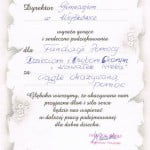 Dyrektor Gimnazjum
w
wyraża gorące i
serdeczne podziękowanie
dla Fundacji Pomocy
Dzieciom i Osobom Chorym
za
ciągle okazywaną
pomoc
Głęboko wierzymy, że okazywana nam
przyjaźń doda i siła serca
będzie nas wspierać
w dalszej pracy podejmowanej
dla dobra dziecka.